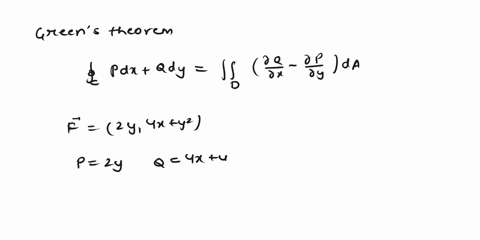 Green's theorem
∮_C Pdx + Qdy = ∬_D (∂Q/∂x − ∂P/∂y) dA
F⃗ = (2y, 4x+y²)
P = 2y Q = 4x+u